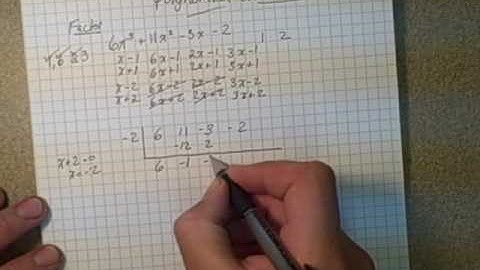 Factor
6x³ + 11x² - 3x - 2
1 2
1, 6 2, 3
x-1 6x-1 2x-1 3x-1
x+1 6x+1 2x+1 3x+1
x-2 6x-2 2x-2 3x-2
x+2 6x+2 2x+2 3x+2
-2 6 11 -3 -2
-12 2
x+2=0
x=-2
6 -1 -